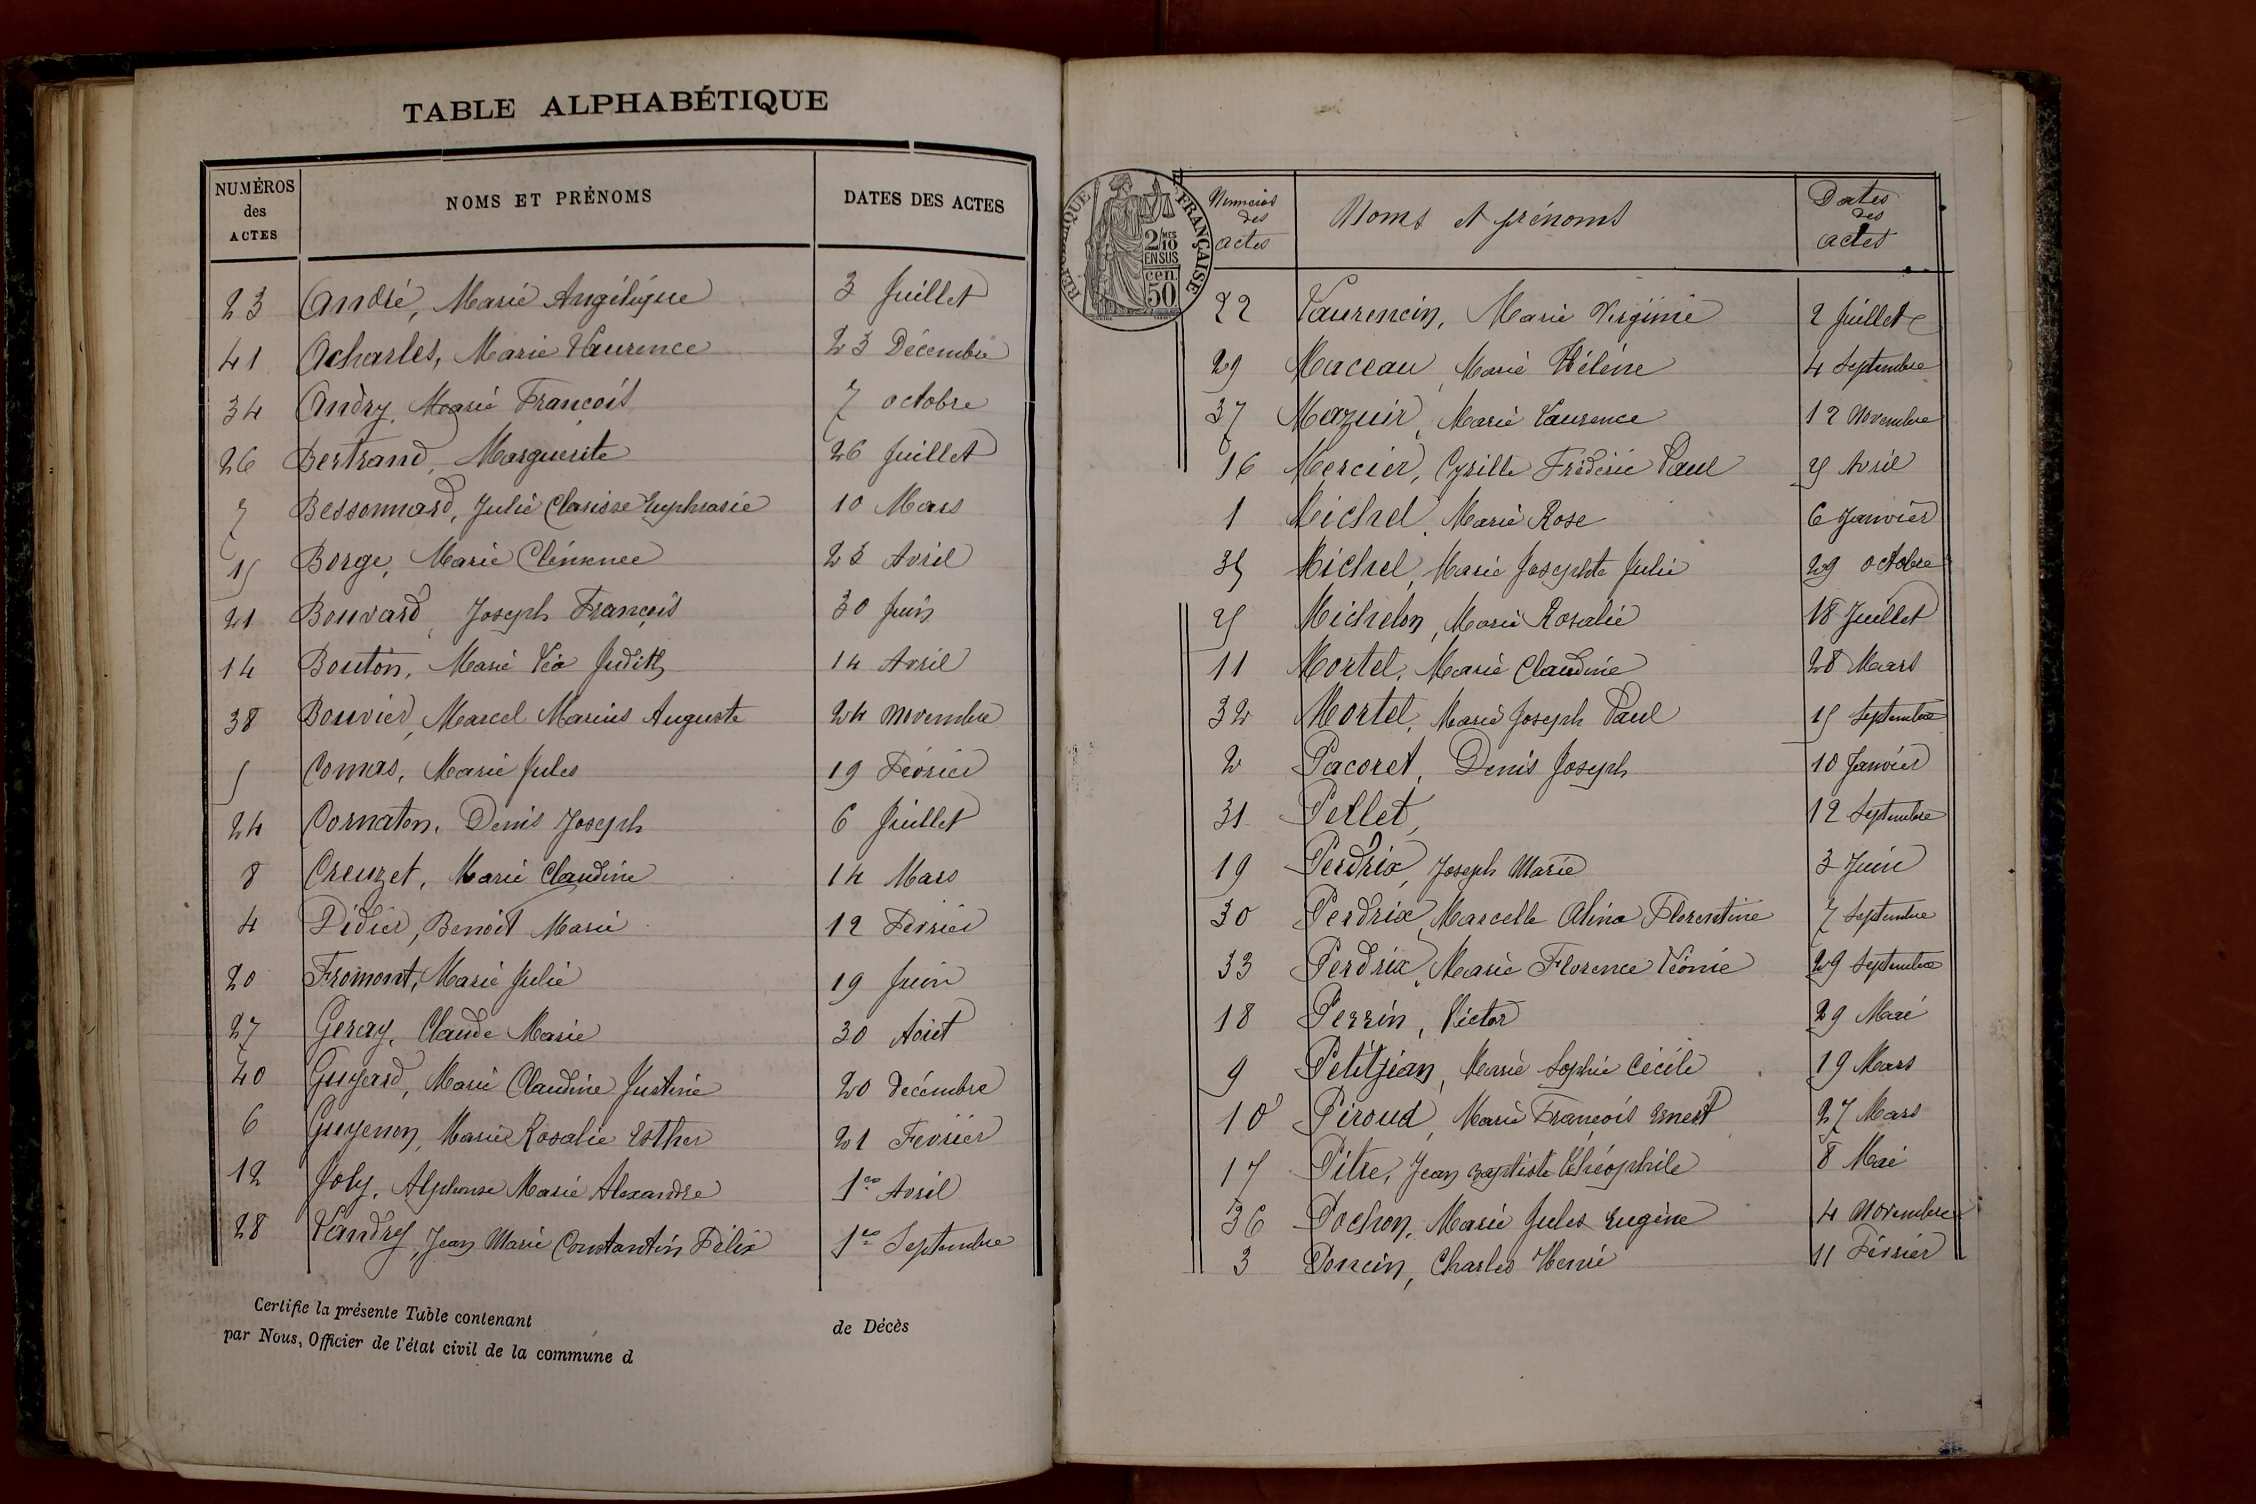 TABLE ALPHABÉTIQUE
NUMÉROS des ACTES NOMS ET PRÉNOMS DATES DES ACTES
23 André, Marie Angélique 3 Juillet
41 Acharles, Marie Laurence 23 Décembre
34 Andry, Marie François 7 octobre
26 Bertrand, Marguerite 26 Juillet
7 Bessonnard, Julie Clarisse Euphrasie 10 Mars
15 Borge, Marie Clémence 23 Avril
21 Bouvard, Joseph François 30 Juin
14 Bouton, Marie Léa Judith 14 Avril
38 Bouvier, Marcel Marius Auguste 24 Novembre
5 Comas, Marie Jules 19 Février
24 Cornaton, Denis Joseph 6 Juillet
8 Creuzet, Marie Claudine 14 Mars
4 Didier, Benoît Marie 12 Février
20 Fromont, Marie Julie 19 Juin
27 Geray, Claude Marie 30 Août
40 Guyard, Marie Claudine Justine 20 Décembre
6 Guyenon, Marie Rosalie Esther 21 Février
12 Joly, Alphonse Marie Alexandre 1er Avril
28 Landry, Jean Marie Constantin Félix 1er Septembre
Certifie la présente Table contenant de Décès
par Nous, Officier de l'état civil de la commune d
RÉPUBLIQUE FRANÇAISE
2/10 MES
EN SUS
50 cen
Numéros des actes Noms et prénoms Dates des actes
22 Laurencin, Marie Virginie 2 Juillet
29 Maceau, Marie Hélène 4 Septembre
37 Mazuir, Marie Laurence 12 Novembre
16 Mercier, Cyrille Frédéric Paul 25 Avril
1 Michel, Marie Rose 6 Janvier
35 Michel, Marie Josephte Julie 29 octobre
25 Michelon, Marie Rosalie 18 Juillet
11 Mortel, Marie Claudine 28 Mars
32 Mortel, Marie Joseph Paul 15 Septembre
2 Pacoret, Denis Joseph 10 Janvier
31 Pellet, 12 Septembre
19 Perdrix, Joseph Marie 3 Juin
30 Perdrix, Marcelle Alina Florentine 7 Septembre
33 Perdrix, Marie Florence Léonie 29 Septembre
18 Perrin, Victor 29 Mai
9 Petitjean, Marie Sophie Cécile 19 Mars
10 Piroud, Marie François Ernest 27 Mars
17 Pitre, Jean Baptiste Théophile 8 Mai
36 Pochon, Marie Jules Eugène 4 Novembre
3 Poncin, Charles Henri 11 Février